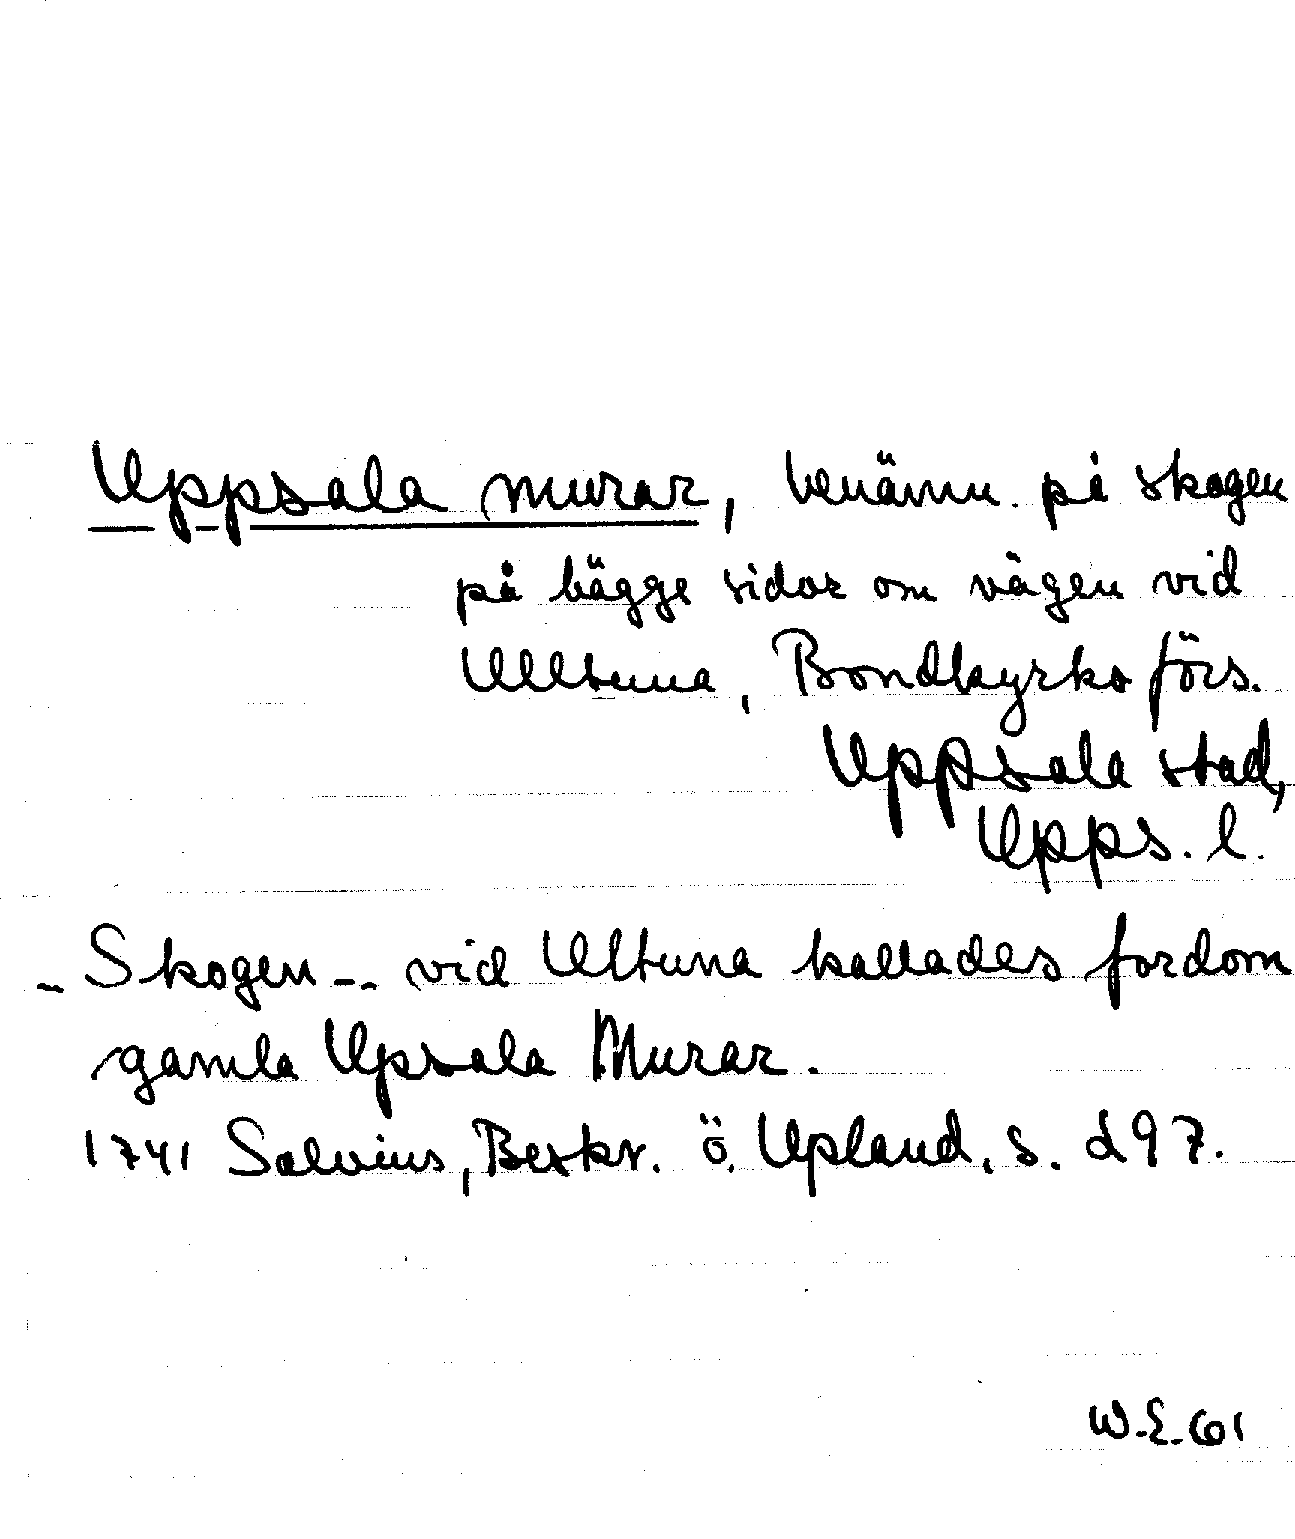 Uppsala murar, benämn. på skogen
på bägge sidor om vägen vid
Ulltuna, Bondkyrko förs.
Uppsala stad,
Upps. l.
- Skogen -- vid Ultuna kallades fordom
gamla Upsala Murar.
1741 Salvius, Beskr. ö. Upland, s. 297.
W.E. 61